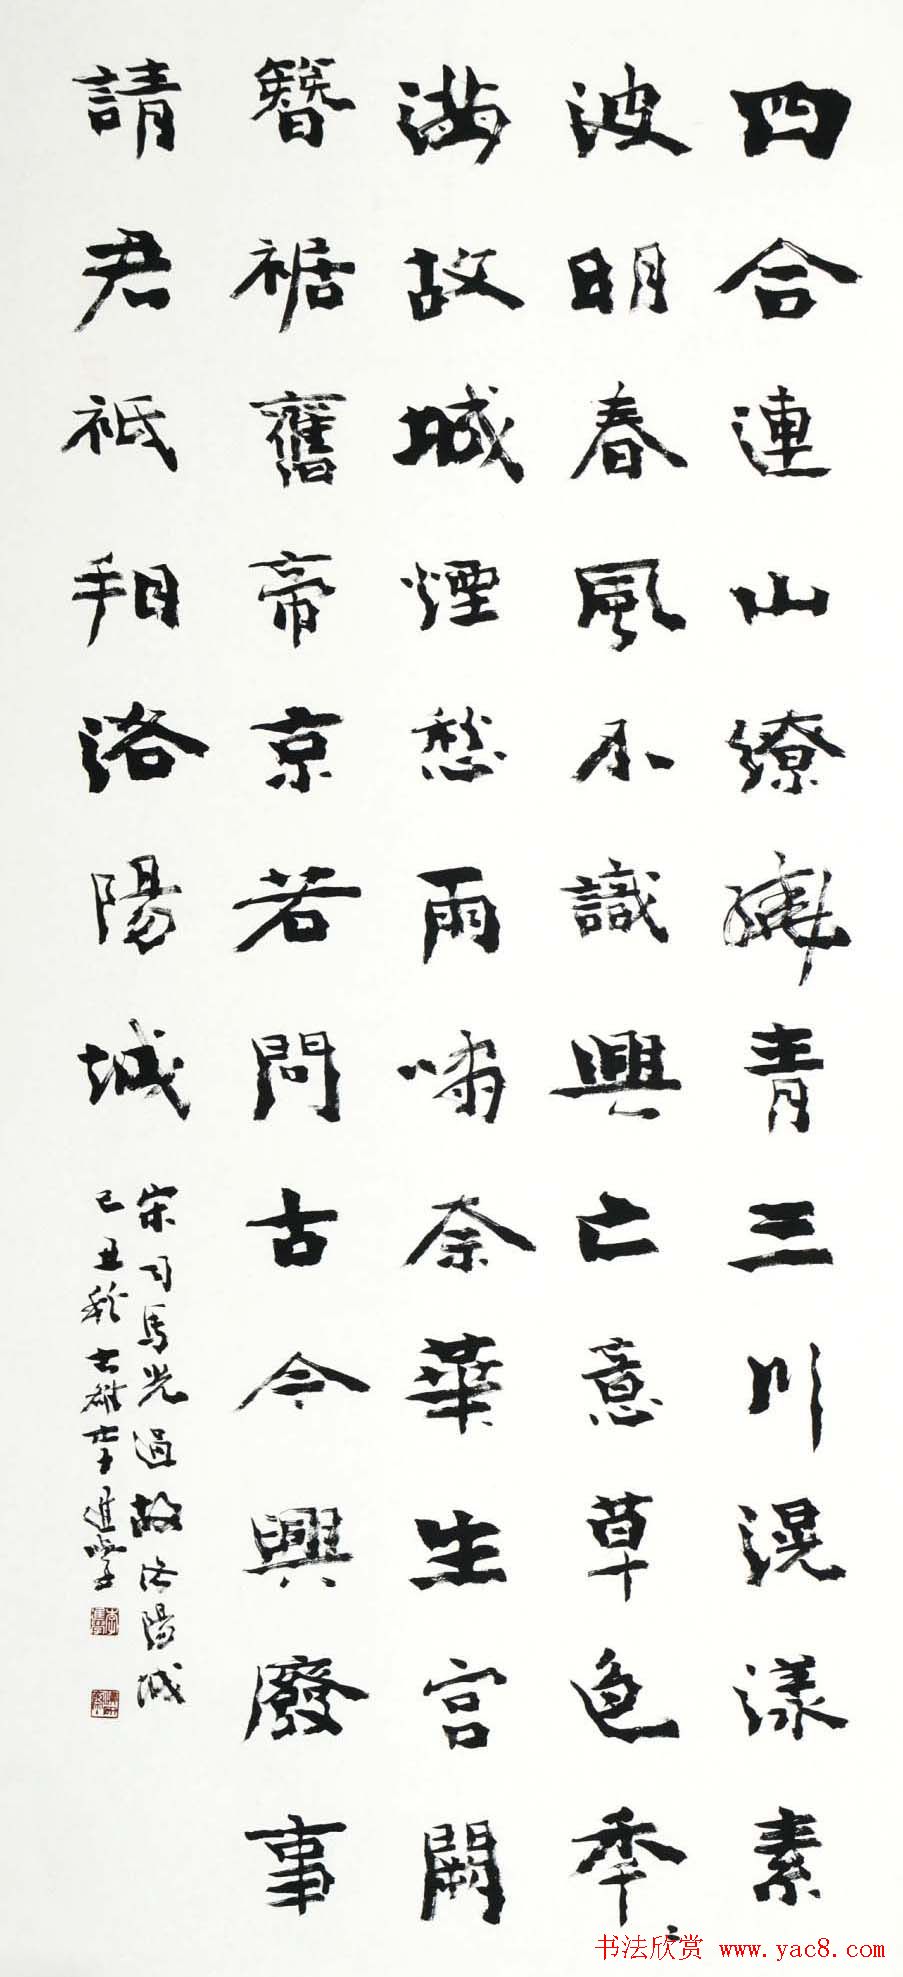 四合連山繚繞青三川滉漾素
波明春風不識興亡意草色年二
滿故城煙愁雨嘯奈華生宮闕
簪裾舊帝京若問古今興廢事
請君祗相洛陽城
宋司馬光過故洛陽城
己丑秋古雍李進學
书法欣赏 www.yac8.com